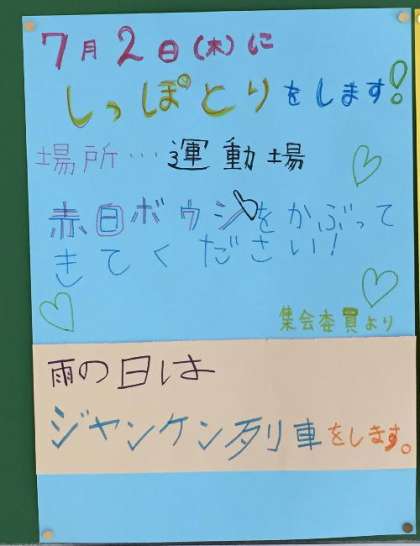 7月2日(木)に
しっぽとりをします!
場所…運動場
赤白ボウシをかぶって
きてください!
集会委員より
雨の日は
ジャンケン列車をします。